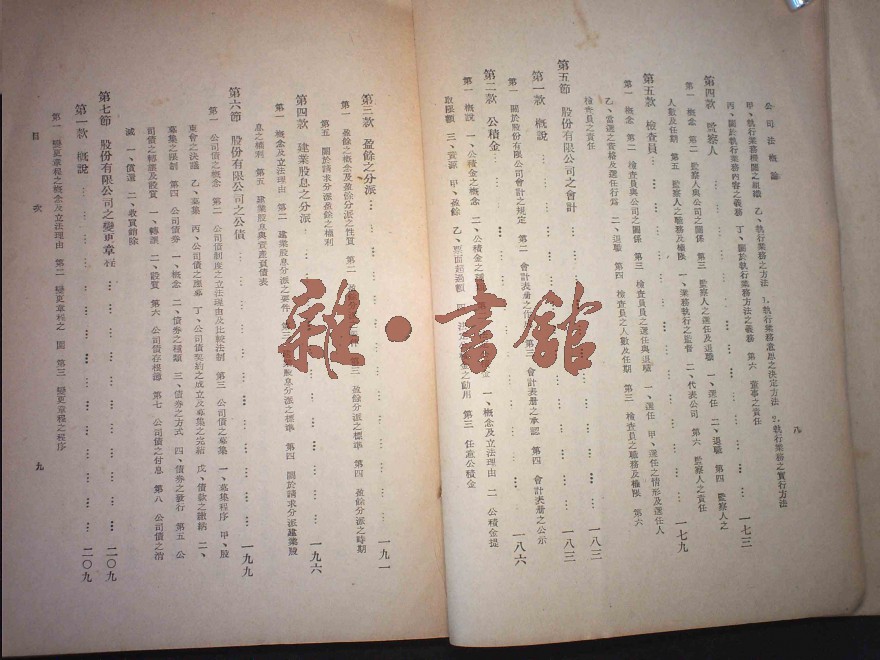 公司法概論
八
甲、執行業務機關之組織 乙、執行業務之方法 1.執行業務意思之決定方法 2.執行業務之實行方法
丙、關於執行業務內容之義務 丁、關於執行業務方法之義務 第六 董事之責任
第四款 監察人 … 一七三
第一 概念 第二 監察人與公司之關係 第三 監察人之選任及退職 一、選任 二、退職 第四 監察人之
人數及任期 第五 監察人之職務及權限 一、業務執行之監督 二、代表公司 第六 監察人之責任
第五款 檢查員 … 一七九
第一 概念 第二 檢查員與公司之關係 第三 檢查員之選任與退職 一、選任 甲、選任之情形及選任人
乙、當選之資格及選任行為 二、退職 第四 檢查員之人數及任期 第五 檢查員之職務及權限 第六
檢查員之責任
第五節 股份有限公司之會計 … 一八三
第一款 概說 … 一八三
第一 關於股份有限公司會計之規定 第二 會計表册之作 第三 會計表册之承認 第四 會計表册之公示
第二款 公積金 … 一八六
第一 概說 一、公積金之概念 二、公積金之種 金 一、概念及立法理由 二、公積金提
取限額 三、資源 甲、盈餘 乙、票面超過額 四、法定公積金之動用 第三 任意公積金
第三款 盈餘之分派 … 一九一
第一 盈餘之概念及盈餘分派之性質 第二 盈 第三 盈餘分派之標準 第四 盈餘分派之時期
第五 關於請求分派盈餘之權利
第四款 建業股息之分派 … 一九六
第一 概念及立法理由 第二 建業股息分派之要件 第三 建業股息分派之標準 第四 關於請求分派建業股
息之權利 第五 建業股息與資產負債表
第六節 股份有限公司之公債 … 一九九
第一 公司債之概念 第二 公司債制度之立法理由及比較法制 第三 公司債之募集 一、募集程序 甲、股
東會之決議 乙、募集 丙、公司債之應募 丁、公司債契約之成立及募集之完結 戊、債款之繳納 二、
募集之限制 第四 公司債券 一、概念 二、債券之種類 三、債券之方式 四、債券之發行 第五 公
司債之轉讓及設質 一、轉讓 二、設質 第六 公司債存根簿 第七 公司債之付息 第八 公司債之消
滅 一、償還 二、收買銷除
第七節 股份有限公司之變更章程 … 二〇九
第一款 概說 … 二〇九
第一 變更章程之概念及立法理由 第二 變更章程之 圍 第三 變更章程之程序
目次
九
雜·書館